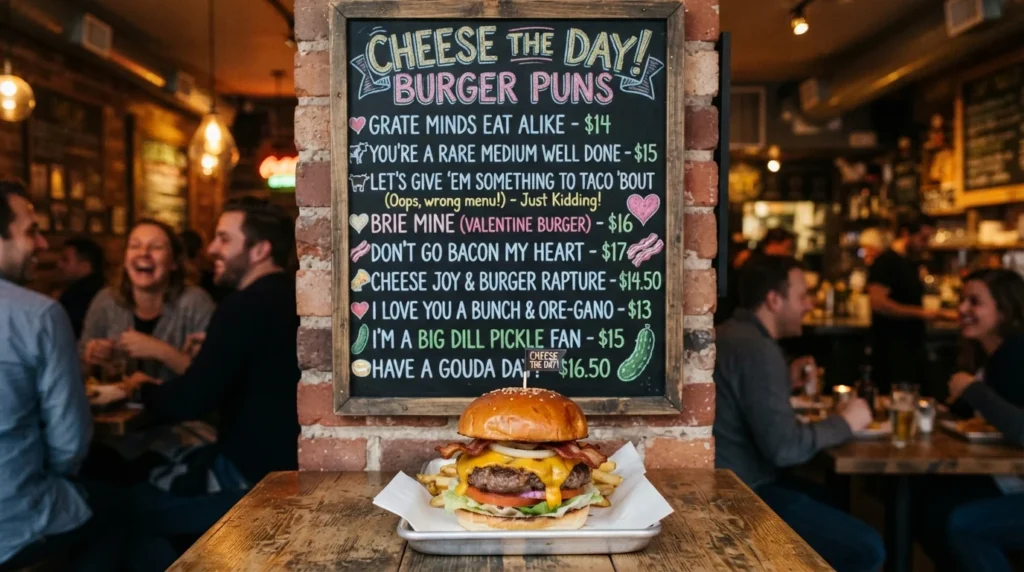 CHEESE THE DAY!
BURGER PUNS
GRATE MINDS EAT ALIKE - $14
YOU'RE A RARE MEDIUM WELL DONE - $15
LET'S GIVE 'EM SOMETHING TO TACO 'BOUT
(Oops, wrong menu!) - Just Kidding!
BRIE MINE (VALENTINE BURGER) - $16
DON'T GO BACON MY HEART - $17
CHEESE JOY & BURGER RAPTURE - $14.50
I LOVE YOU A BUNCH & ORE-GANO - $13
I'M A BIG DILL PICKLE FAN - $15
HAVE A GOUDA DA $16.50
CHEESE
THE DAY!